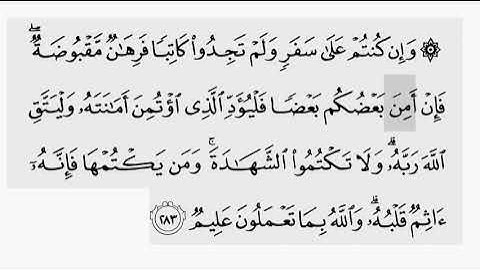 ۞ وَإِن كُنتُمْ عَلَىٰ سَفَرٍ وَلَمْ تَجِدُوا۟ كَاتِبًا فَرِهَـٰنٌ مَّقْبُوضَةٌ ۖ
فَإِنْ أَمِنَ بَعْضُكُم بَعْضًا فَلْيُؤَدِّ ٱلَّذِى ٱؤْتُمِنَ أَمَـٰنَتَهُۥ وَلْيَتَّقِ
ٱللَّهَ رَبَّهُۥ ۗ وَلَا تَكْتُمُوا۟ ٱلشَّهَـٰدَةَ ۚ وَمَن يَكْتُمْهَا فَإِنَّهُۥٓ
ءَاثِمٌ قَلْبُهُۥ ۗ وَٱللَّهُ بِمَا تَعْمَلُونَ عَلِيمٌ ۝٢٨٣